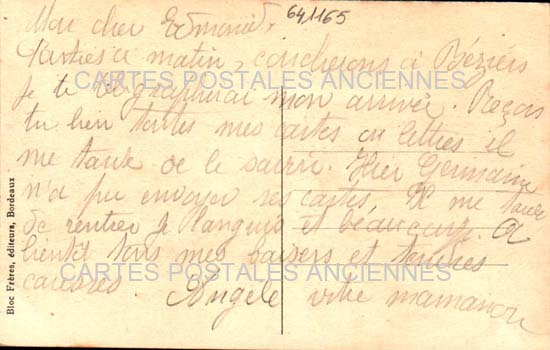 641165
Mon cher Edmond,
Parties ce matin, coucherons à Béziers
CARTES POSTALES ANCIENNES
Je te télégraphierai mon arrivée. Reçois
tu bien toutes mes cartes ou lettres il
me tarde de le savoir. Hier Germaine
n'a pu envoyer ses cartes. Il me tarde
de rentrer je languis et beaucoup A
bientôt tous mes baisers et tendres
CARTES POSTALES ANCIENNES
caresses. Angèle votre maman
Bloc Frères, éditeurs, Bordeaux